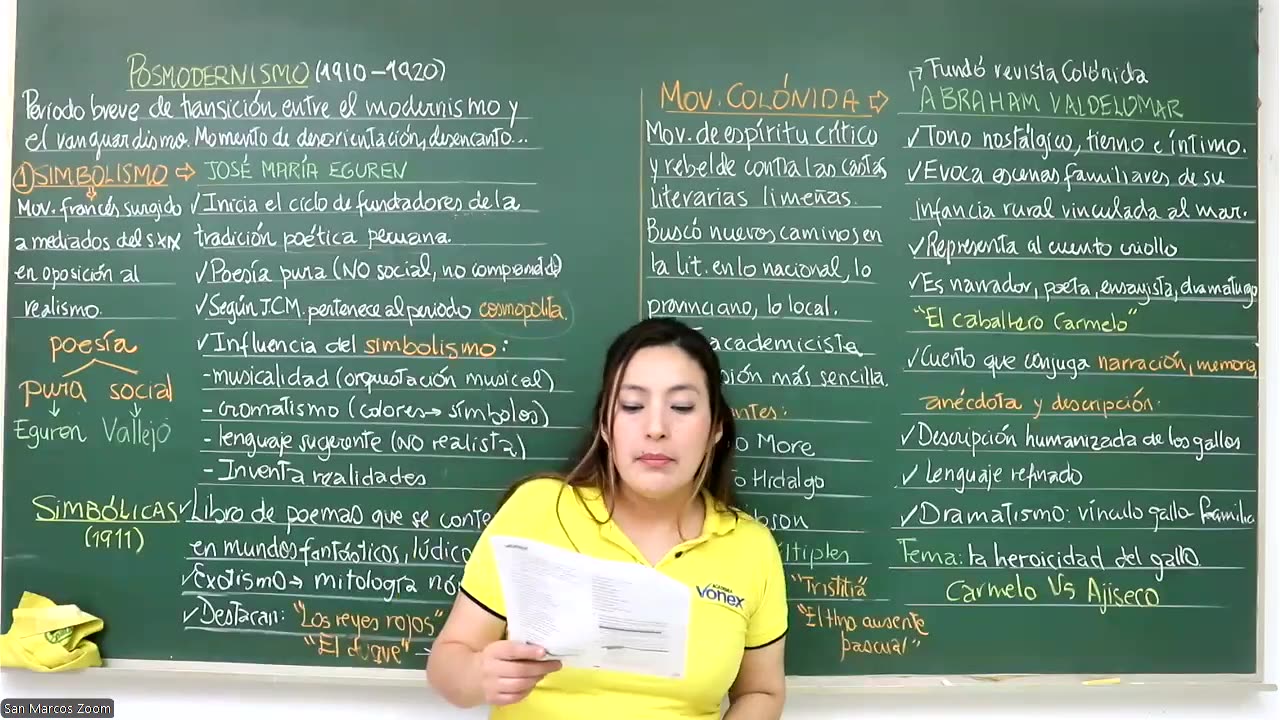 POSMODERNISMO (1910-1920)
Período breve de transición entre el modernismo y
el vanguardismo. Momento de desorientación, desencanto...
① SIMBOLISMO ⇨ JOSÉ MARÍA EGUREN
Mov. francés surgido
a mediados del s. XIX
en oposición al
realismo.
poesía
pura social
Eguren Vallejo
✓Inicia el ciclo de fundadores de la
tradición poética peruana.
✓Poesía pura (NO social, no comprometida)
✓Según J.C.M. pertenece al periodo cosmopolita.
✓Influencia del simbolismo:
-musicalidad (orquestación musical)
-cromatismo (colores→símbolos)
-lenguaje sugerente (NO realista)
-Inventa realidades
SIMBÓLICAS
(1911)
✓Libro de poemas que se conte
en mundos fantásticos, lúdico
✓Exotismo→ mitología nó
✓Destacan: "Los reyes rojos"
"El duque"
MOV. COLÓNIDA ⇨
Mov. de espíritu crítico
y rebelde contra las castas
literarias limeñas.
Buscó nuevos caminos en
la lit. en lo nacional, lo
provinciano, lo local.
academicista
sión más sencilla.
antes:
o More
o Hidalgo
bson
últiples
"Tristitia"
"El Hno ausente
pascual"
Fundó revista Colónida
ABRAHAM VALDELOMAR
✓Tono nostálgico, tierno e íntimo.
✓Evoca escenas familiares de su
infancia rural vinculada al mar.
✓Representa al cuento criollo
✓Es narrador, poeta, ensayista, dramaturgo
"El caballero Carmelo"
✓Cuento que conjuga narración, memoria,
anécdota y descripción.
✓Descripción humanizada de los gallos
✓Lenguaje refinado
✓Dramatismo: vínculo gallo familia
Tema: la heroicidad del gallo
Carmelo Vs Ajiseco
ACADEMIA
VONEX
San Marcos Zoom